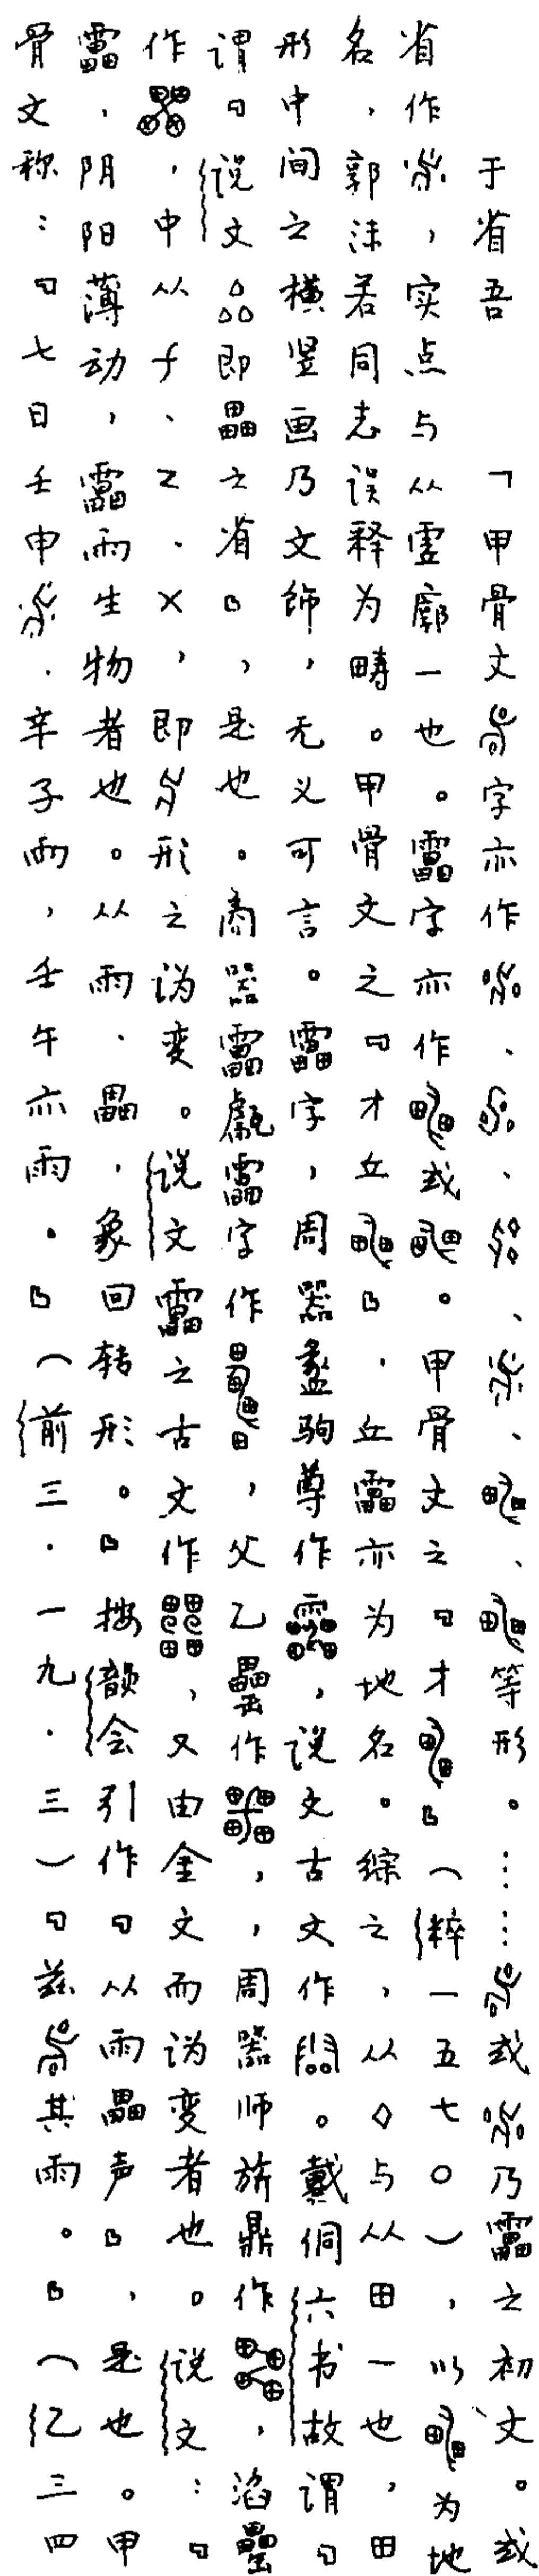 于省吾 「甲骨文字亦作、、、、、等形。……或乃靁之初文。或
省作，实点与从虚廓一也。靁字亦作或。甲骨文之「才」（粹一五七〇），以为地
名，郭沫若同志误释为畴。甲骨文之「才丘」，丘靁亦为地名。综之，从◇与从田一也，田
形中间之横竖画乃文饰，无义可言。靁字，周器盠驹尊作，说文古文作。戴侗六书故谓「
谓「说文即畾之省」，是也。商器靁甗靁字作，父乙罍作，周器师旂鼎作，滔罍
作，中从、乙、×，即形之讹变。说文靁之古文作，又由金文而讹变者也。说文：「
靁，阴阳薄动，靁雨生物者也。从雨、畾，象回转形。」按韵会引作「从雨畾声」，是也。甲
骨文称：「七日壬申．辛子雨，壬午亦雨。」（前三．一九．三）「兹其雨。」（乙三四